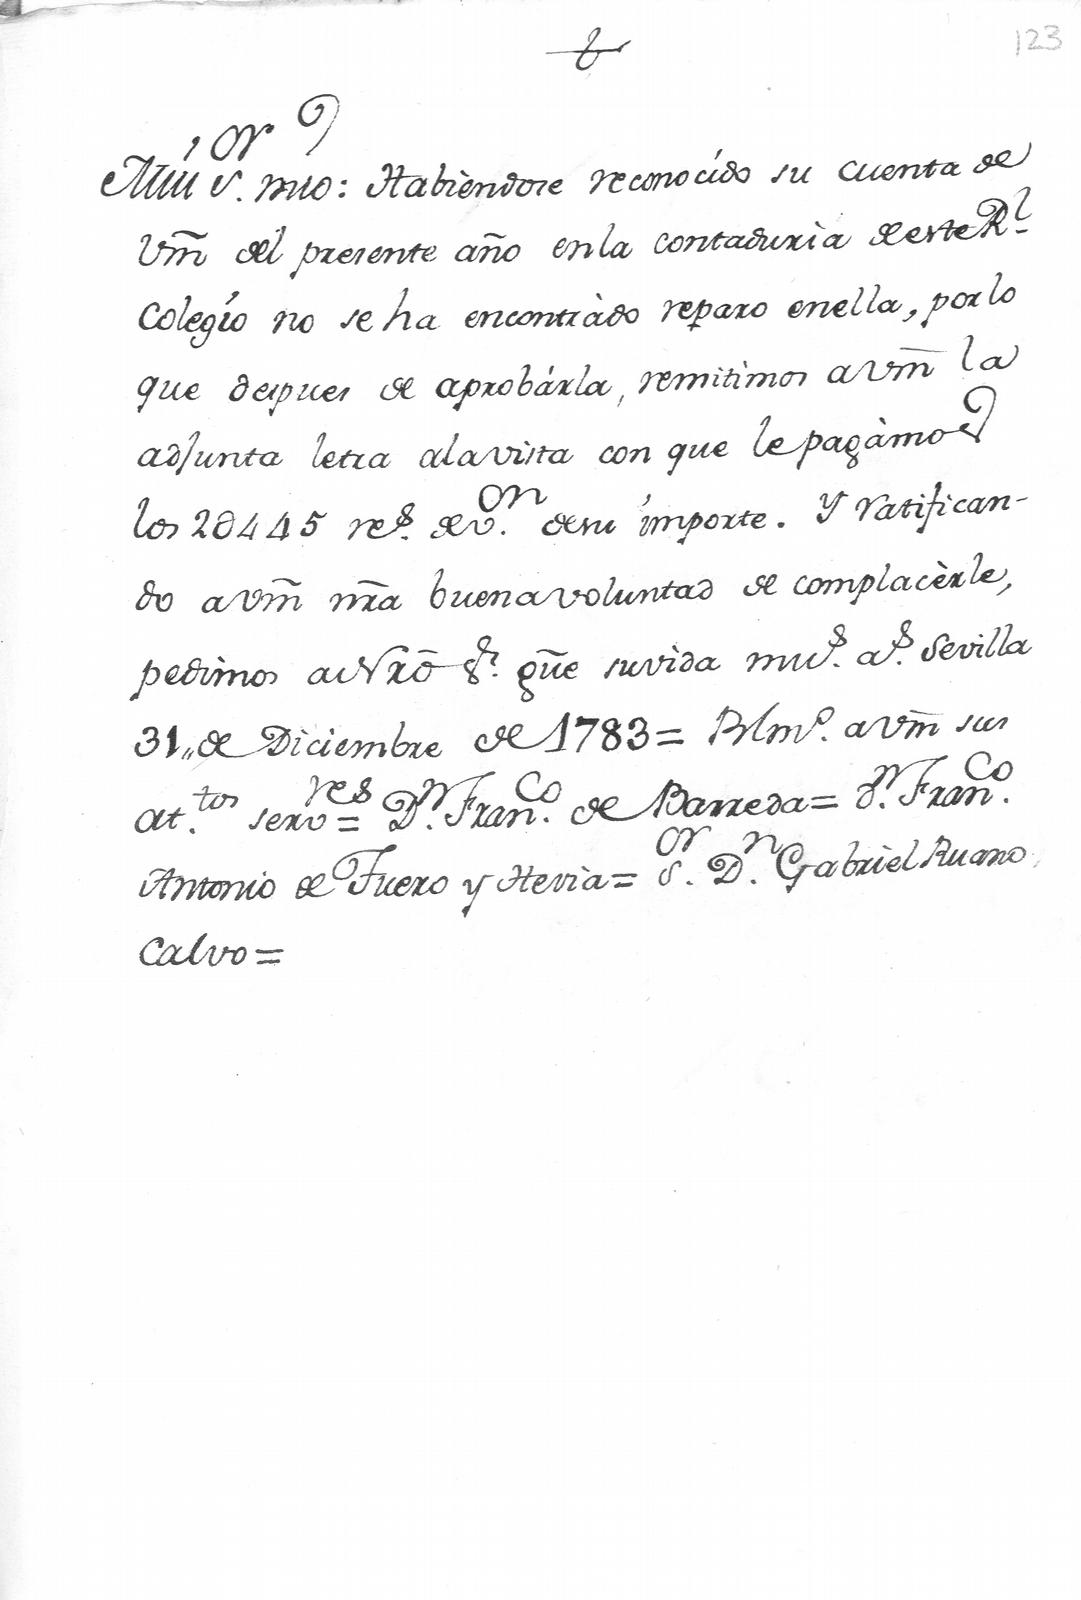 123
Mui S.or mio: Habièndose reconocído su cuenta de
Vm̃ del presente año enla contadurìa de este R.l
Colegío no se ha encontràdo reparo enella, porlo
que despues de aprobárla, remitimos a Vm̃ la
adjunta letra alavista con que le pagàmos
los 20445 rs. de v.on desu ímporte. Y ratifican-
do a Vm̃ nr̃a buena voluntad de complacèrle,
pedimos a Nrõ S.r gũe suvida mu.s a.s Sevilla
31,, de Diciembre de 1783= Blm.o a Vm̃ sus
at.tos serv.res = D.n Fran.co de Barreda= d.n Fran.co
Antonio de Fuero y Hevia= S.or D.n Gabriel Ruano
Calvo=